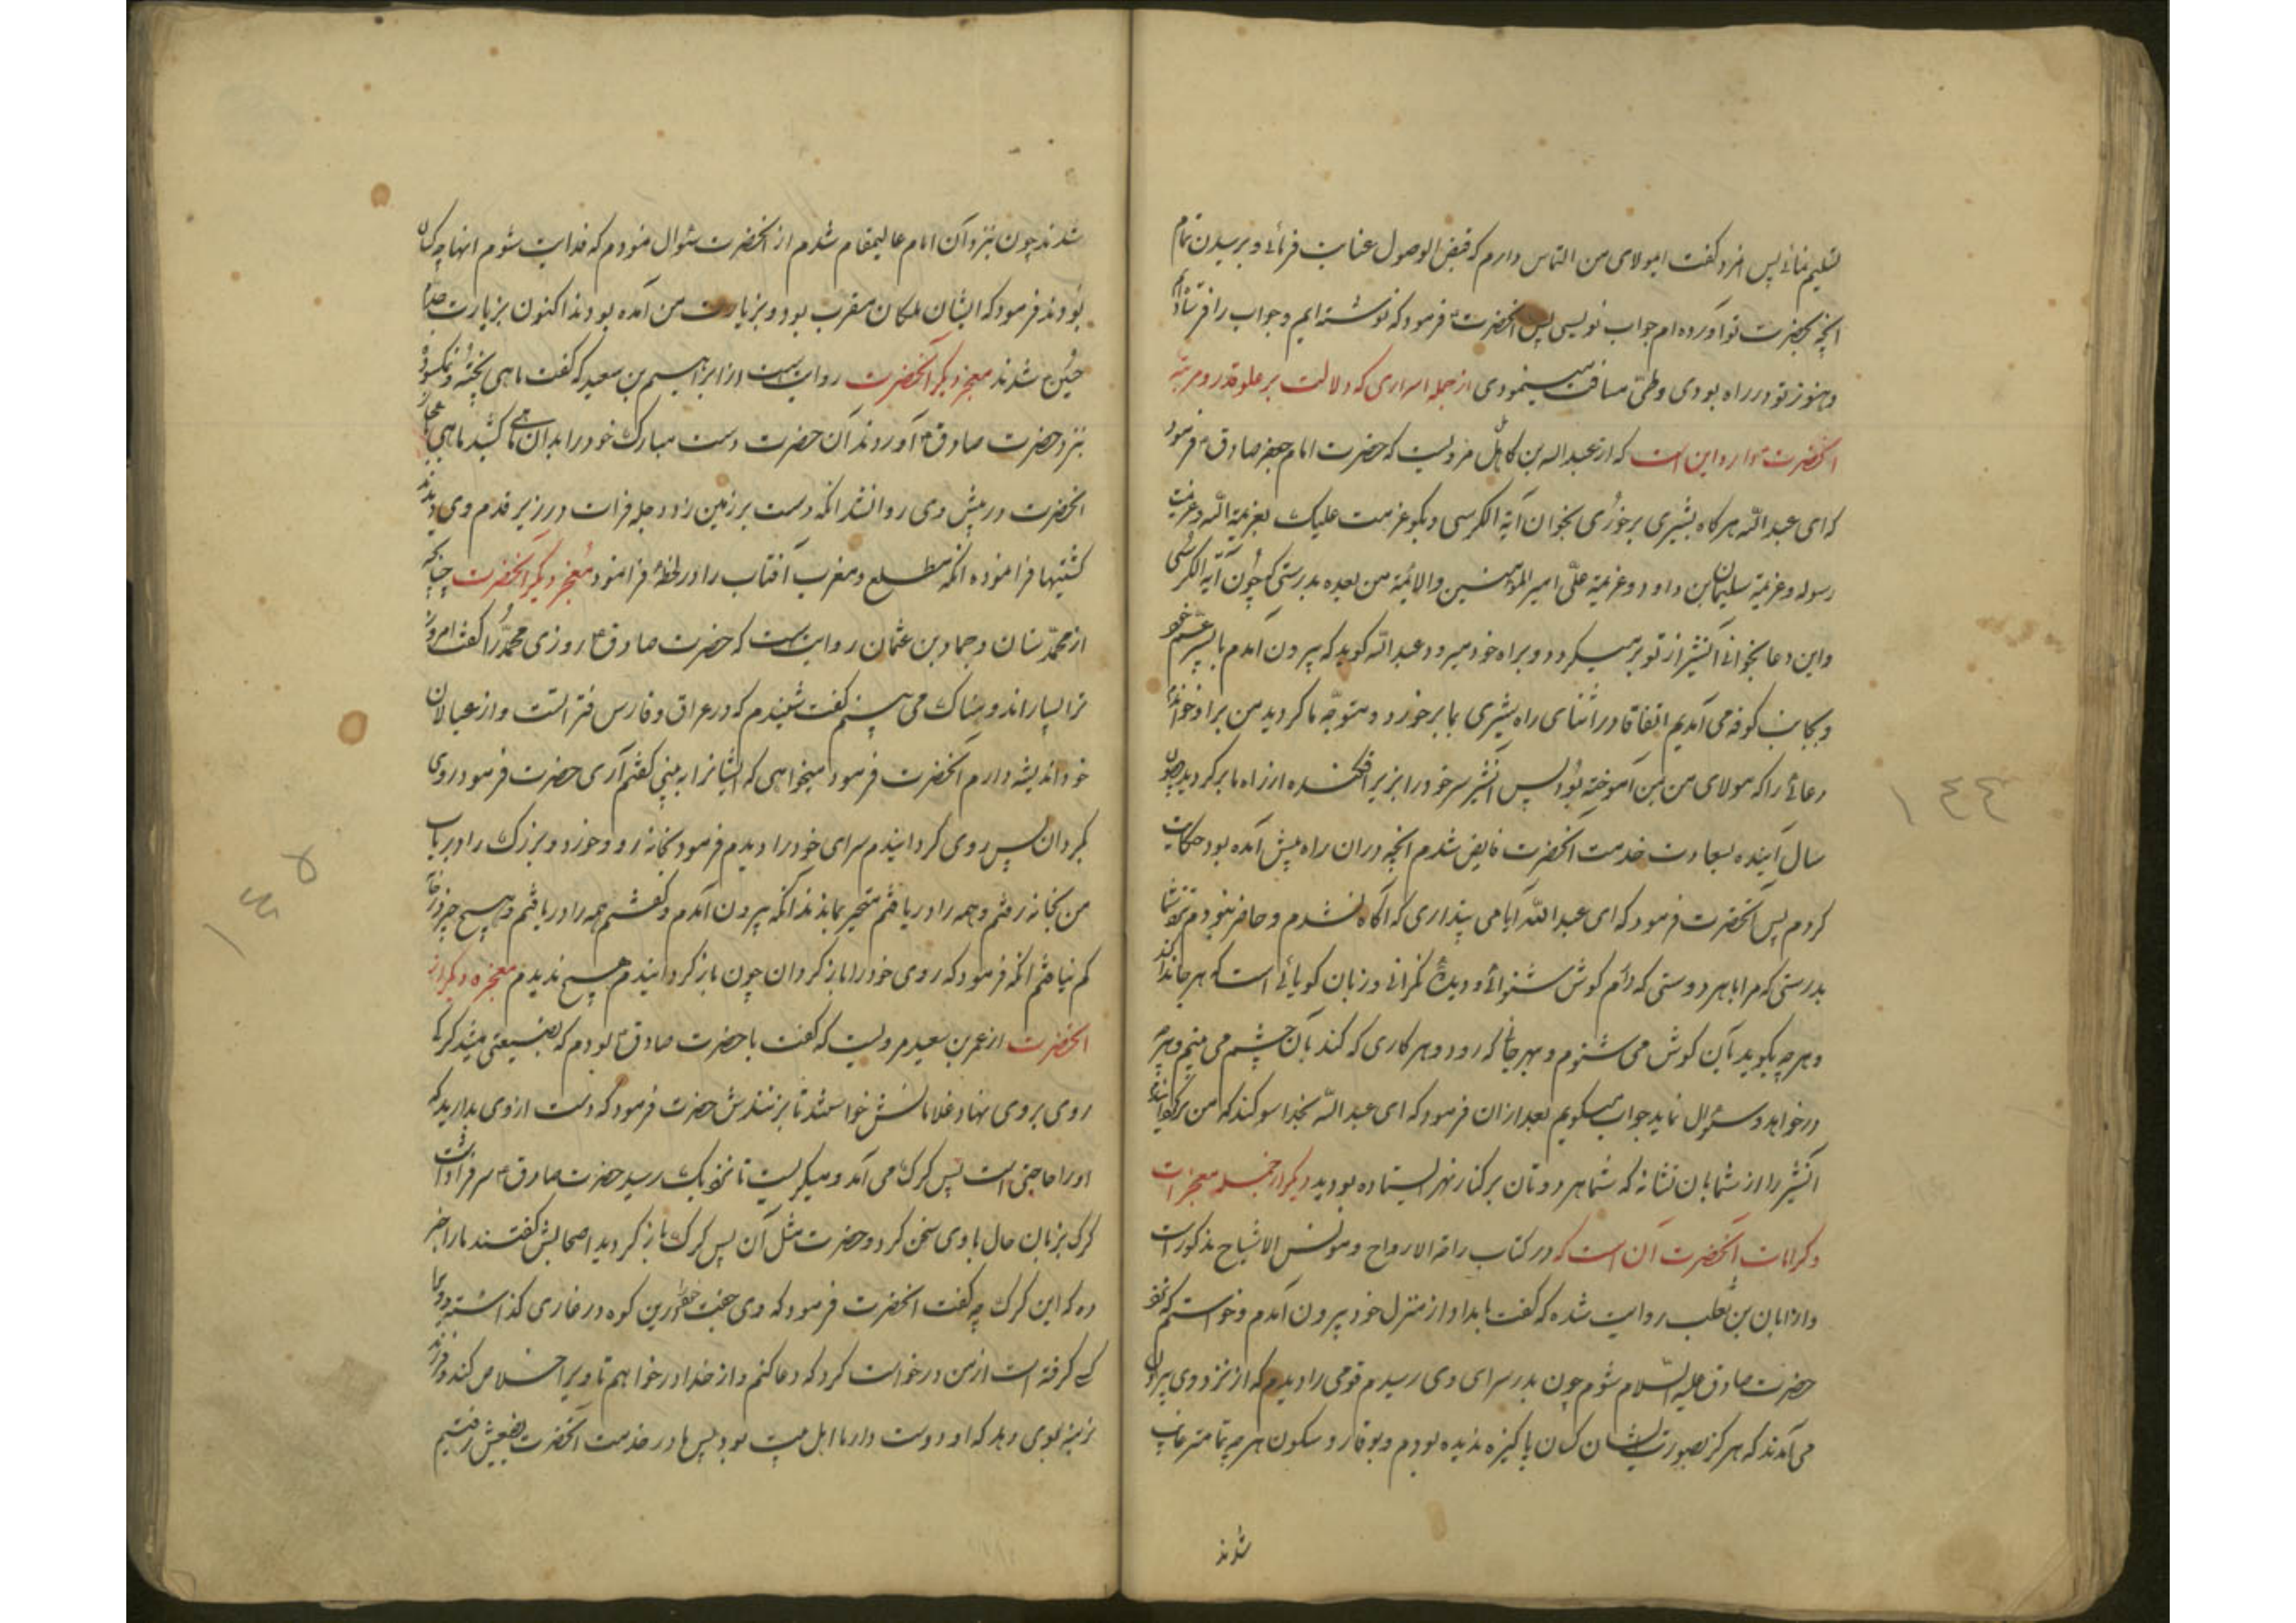 تسلیم نمائے پس انمرد گفت ایمولای من التماس دارم که قبض الوصول عنایت فرمائے و برسیدن تمام
انچه بحضرت تو آورده ام جواب نویسی پس انحضرت فرمود که نوشته ایم و جواب را فرستاده ایم
و هنوز تو در راه بودی و طیّ مسافت مینمودی از جمله اسراری که دلالت بر علو قدر و مرتبهٔ
انحضرت دارد این است که از عبد الله بن کاهل مرویست که حضرت امام جعفر صادق فرمود
که ای عبد الله هر کاه بشیری برخوری بخوان آیة الکرسی و بکو عزمت علیک بعزیمة الله و عزیمة
رسوله و عزیمة سلیمان بن داود و عزیمة علی امیر المؤمنین والائمة من بعده بدرستی که چون آیة الکرسی
و این دعا بخوانی آنشیر از تو برمیکردد و براه خود میرود عبد الله کوید که بیرون آمدم با پسر عم خود
و بجانب کوفه می آمدیم اتفاقا در اثنای راه شیری بما برخورد و متوجه ما کردید من بر او خواندم
دعائے را که مولای من بمن آموخته بود پس آنشیر سر خود را بزیر افکنده از راه ما برکردید چون
سال آینده بسعادت خدمت آنحضرت فایض شدم انچه در ان راه پیش آمده بود حکایت
کردم پس آنحضرت فرمود که ای عبد الله آیا می پنداری که آگاه نشدم و حاضر نبودم نزد شما
بدرستی که مرا با هر دوستی که دارم کوش شنوائے و دیدهٔ نکرانی و زبان کویائے است که هر جا
و هر چه بکوید بآن کوش می شنوم و بهر جائے که رود و هر کاری که کند بآن چشم می بینم و هر چه
درخواهد و سؤال نماید جواب میکویم بعد ازان فرمود که ای عبد الله بخدا سوکند که من برکردانیدم
آنشیر را از شما بان نشانه که شما هر دوتان بر کنار نهر ایستاده بودید دیکر از جمله معجزات
و کرامات آنحضرت آن است که در کتاب راحة الارواح و مونس الاشباح مذکور است
و از ابان بن تغلب روایت شده که گفت بامداد از منزل خود بیرون آمدم و خواستم که نزد
حضرت صادق علیه السّلام شوم چون بدر سرای وی رسیدم قومی را دیدم که از نزد وی بیرون
می آمدند که هرکز بصورت ایشان کسان پاکیزه ندیده بودم و بوقار و سکون هر چه تمامتر غایب
شدند
۱۴۴
شدند چون بنزد آن امام عالیمقام شدم از آنحضرت سئوال نمودم که فدایت شوم اینها چه کسان
بودند فرمود که ایشان ملکان مقرب بود و بزیارت من آمده بودند اکنون بزیارت جدّم
حسین شدند معجزه دیکر آنحضرت روایت است از ابراهیم بن سعید که گفت ماهی پخته و نمکسود
بنزد حضرت صادق آوردند آن حضرت دست مبارک خود را بدان ماهی کشید ماهی
انحضرت در پیش وی روان شد انکه دست بر زمین زد دجله فرات در زیر قدم وی دیدند
کشتیها فرا نموده انکه مطلع و مغرب آفتاب را در لحظهٔ فرا نمود معجزه دیکر آنحضرت چنانکه
از محمّد سنان و حماد بن عثمان روایت است که حضرت صادق روزی محمّد را گفت امروز
ترا بسیار اندوهناک می بینم گفت شنیدم که در عراق و فارس فتنه است و از عیالان
خود اندیشه دارم آنحضرت فرمود میخواهی که ایشانرا به بینی گفتم آری حضرت فرمود روی
بکردان پس روی کردانیدم سرای خود را دیدم فرمود بخانه رو و خورد و بزرک را دریاب
من بخانه رفتم و همه را دریافتم متحیر بماندند انکه بیرون آمدم و گفتم همه را دریافتم و هیچ چیز
کم نیافتم انکه فرمود که روی خود را باز کردان چون باز کردانیدم هیچ ندیدم معجزه دیکر از
انحضرت از عمر بن سعید مرویست که گفت با حضرت صادق بودم که بضیعتی میشد کرک
روی بروی نهاد غلامانش خواستند تا بزنندش حضرت فرمود که دست از وی بدارید که
او را حاجتی است پس کرک می آمد و میکریست تا نزدیک رسید حضرت صادق سر فرا داشت
کرک بزبان حال با وی سخن کرد و حضرت مثل آن پس کرک باز کردید اصحابش گفتند ما را خبر
ده که این کرک چه گفت انحضرت فرمود که وی جفت خود را درین کوه در غاری کذاشته
کرفته است از من درخواست کرد که دعا کنم و از خدا درخواهم تا ویرا خلاص کند و فرزند
نرینه بوی دهد که او دوست دار ما اهل بیت بود پس ما در خدمت آنحضرت بضیعتش رفتیم
۱۴۵